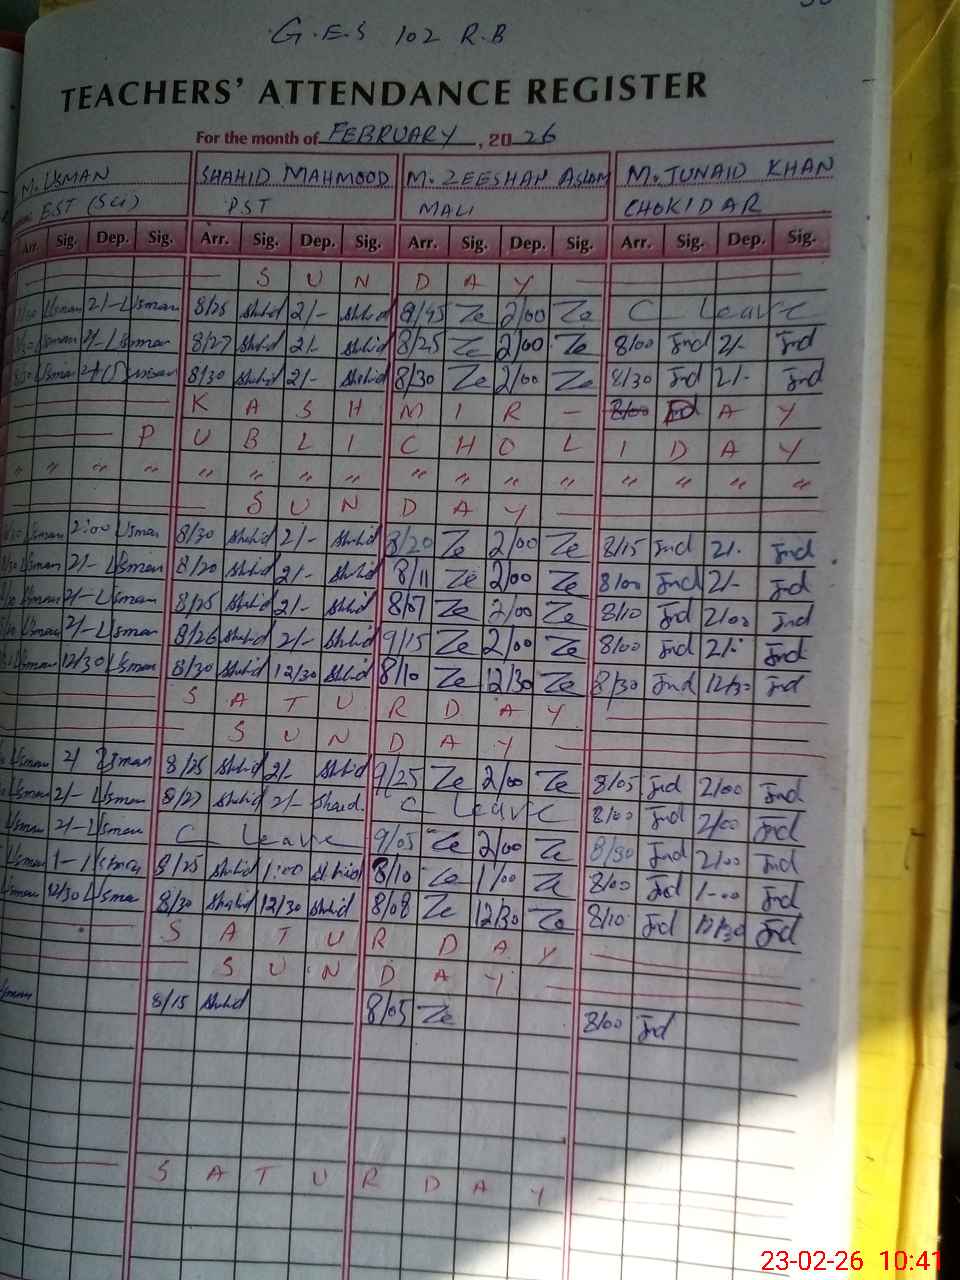 G.E.S 102 R.B
TEACHERS' ATTENDANCE REGISTER
For the month of FEBRUARY, 2026
M. USMAN SHAHID MAHMOOD M. ZEESHAN ASLAM M. JUNAID KHAN
EST (Sci) PST MALI CHOKIDAR
Arr. Sig. Dep. Sig. Arr. Sig. Dep. Sig. Arr. Sig. Dep. Sig. Arr. Sig. Dep. Sig.
S U N D A Y
Usman 2/- Usman 8/25 Shahid 2/- Shahid 9/45 Ze 2/00 Ze C Leave
Usman 2/- Usman 8/27 Shahid 2/- Shahid 8/25 Ze 2/00 Ze 8/00 Jnd 2/- Jnd
Usman Usman 8/30 Shahid 2/- Shahid 8/30 Ze 2/00 Ze 8/30 Jnd 2/- Jnd
K A S H M I R - D A Y
P U B L I C H O L I D A Y
" " " " " " " " " " " " " " " "
S U N D A Y
Usman 2:00 Usman 8/30 Shahid 2/- Shahid 8/20 Ze 2/00 Ze 8/15 Jnd 2/- Jnd
Usman 2/- Usman 8/20 Shahid 2/- Shahid 8/11 Ze 2/00 Ze 8/00 Jnd 2/- Jnd
Usman 2/- Usman 8/25 Shahid 2/- Shahid 8/07 Ze 2/00 Ze 8/10 Jnd 2/00 Jnd
Usman 2/- Usman 8/26 Shahid 2/- Shahid 9/15 Ze 2/00 Ze 8/00 Jnd 2/- Jnd
Usman 12/30 Usman 8/30 Shahid 12/30 Shahid 8/10 Ze 12/30 Ze 8/30 Jnd 12/30 Jnd
S A T U R D A Y
S U N D A Y
Usman 2/ Usman 8/25 Shahid 2/- Shahid 9/25 Ze 2/00 Ze 8/05 Jnd 2/00 Jnd
Usman 2/- Usman 8/27 Shahid 2/- Shahid C Leave 8/00 Jnd 2/00 Jnd
Usman 2/- Usman C Leave 9/05 Ze 2/00 Ze 8/30 Jnd 2/00 Jnd
Usman 1-1 Usman 8/25 Shahid 1:00 Shahid 8/10 Ze 1/00 Ze 8/00 Jnd 1-00 Jnd
Usman 12/30 Usman 8/30 Shahid 12/30 Shahid 8/08 Ze 12/30 Ze 8/10 Jnd 12/30 Jnd
S A T U R D A Y
S U N D A Y
Usman 8/15 Shahid 8/05 Ze 8/00 Jnd
S A T U R D A Y
23-02-26 10:41